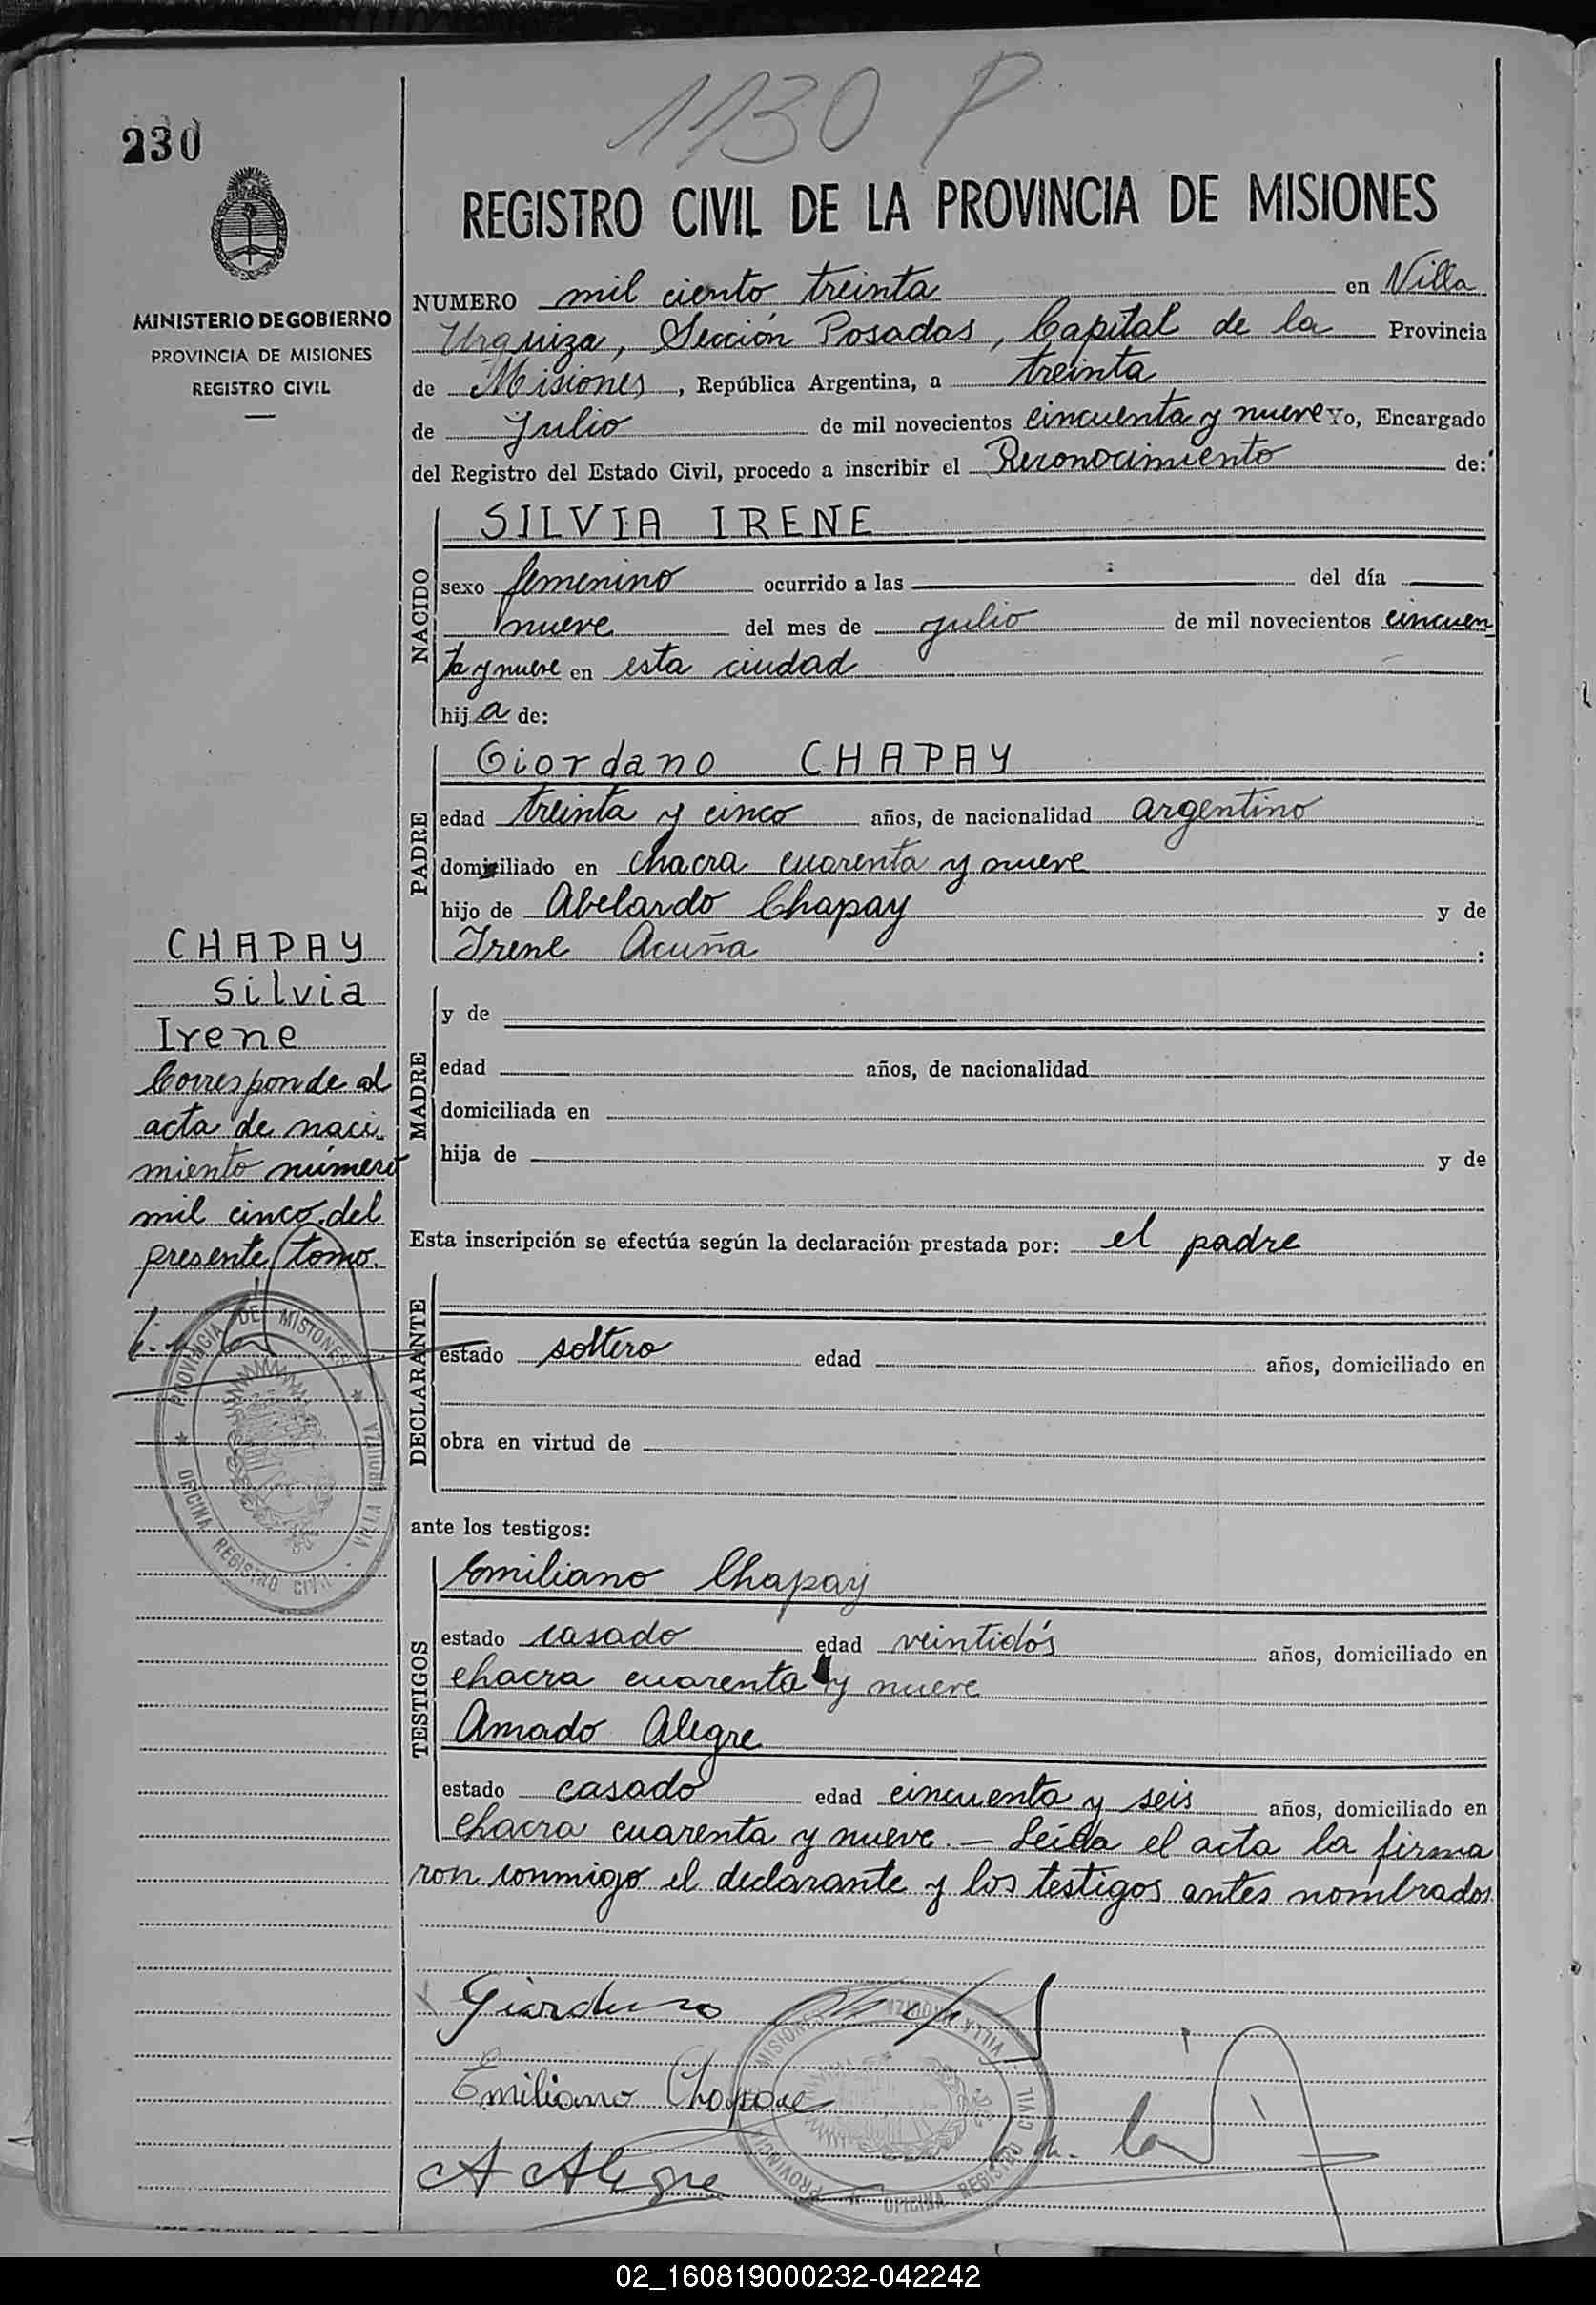 1130 P
230
REGISTRO CIVIL DE LA PROVINCIA DE MISIONES
MINISTERIO DE GOBIERNO
PROVINCIA DE MISIONES
REGISTRO CIVIL
NUMERO mil ciento treinta en Villa
Urquiza, Sección Posadas, Capital de la Provincia
de Misiones, República Argentina, a treinta
de Julio de mil novecientos cincuenta y nueve Yo, Encargado
del Registro del Estado Civil, procedo a inscribir el Reconocimiento de:
NACIDO
SILVIA IRENE
sexo femenino ocurrido a las del día
nueve del mes de julio de mil novecientos cincuen
ta y nueve en esta ciudad
hija de:
PADRE
Giordano CHAPAY
edad treinta y cinco años, de nacionalidad argentino
domiciliado en chacra cuarenta y nueve
hijo de Abelardo Chapay y de
Irene Acuña :
MADRE
y de
edad años, de nacionalidad
domiciliada en
hija de y de
Esta inscripción se efectúa según la declaración prestada por: el padre
DECLARANTE
estado soltero edad años, domiciliado en
obra en virtud de
ante los testigos:
TESTIGOS
Emiliano Chapay
estado casado edad veintidós años, domiciliado en
chacra cuarenta y nueve
Amado Alegre
estado casado edad cincuenta y seis años, domiciliado en
chacra cuarenta y nueve. — Leída el acta la firma
ron conmigo el declarante y los testigos antes nombrados
CHAPAY
Silvia
Irene
Corresponde al
acta de naci
miento número
mil cinco del
presente tomo.
PROVINCIA DE MISIONES
OFICINA REGISTRO CIVIL - VILLA URQUIZA
Giordano
Emiliano Chapay
A Alegre
PROVINCIA MISIONES
OFICINA REGISTRO CIVIL - VILLA URQUIZA
02_160819000232-042242